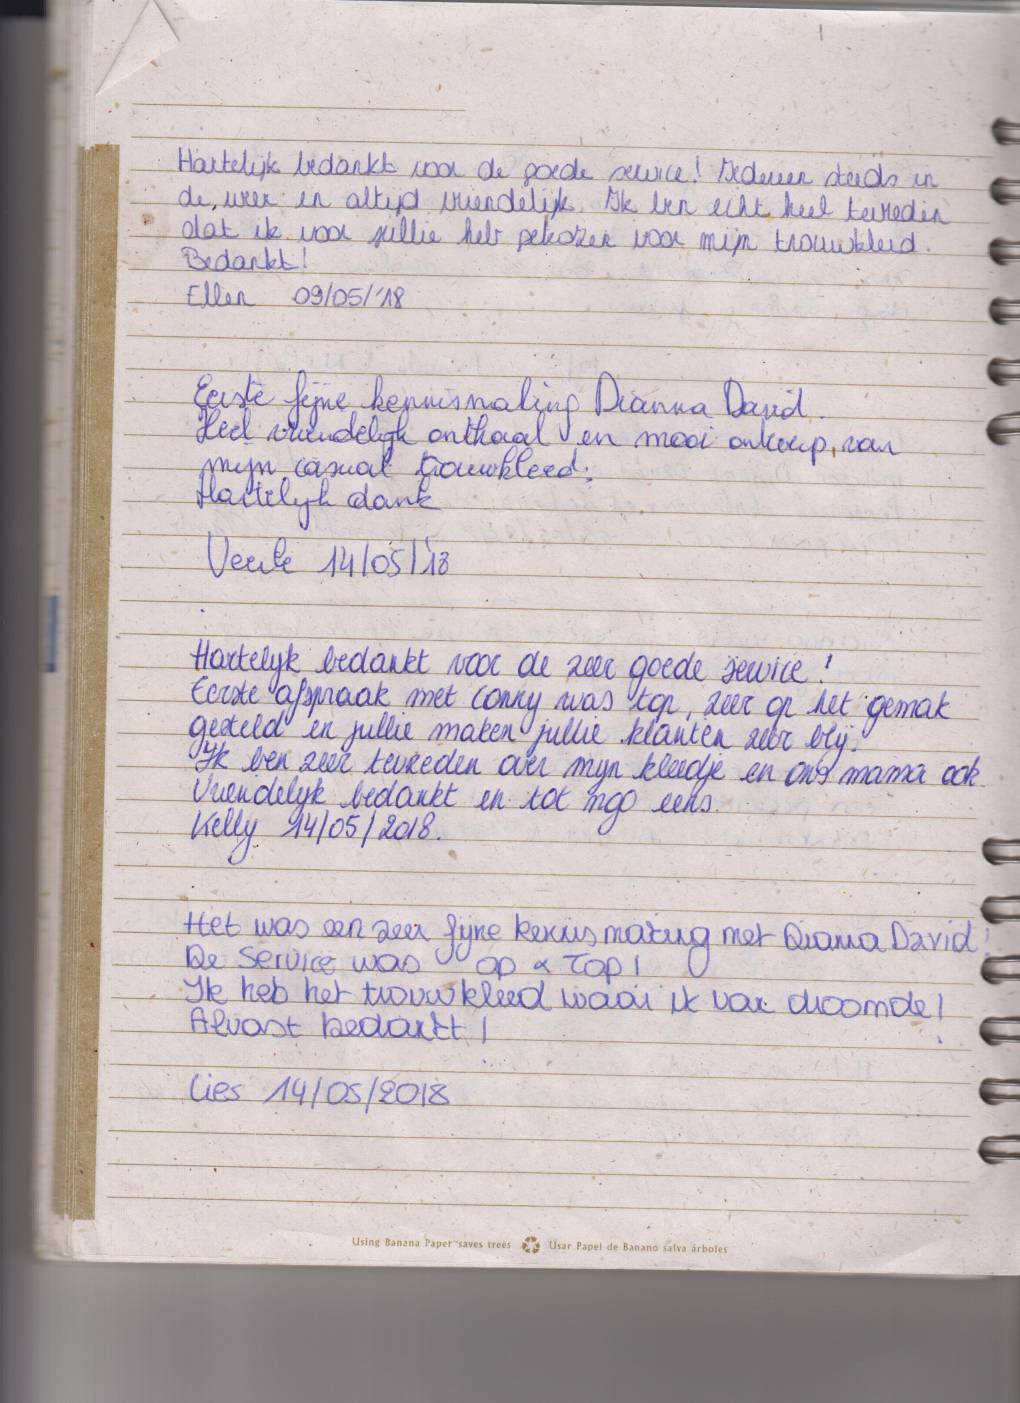 Hartelijk bedankt voor de goede service! Iedereen steeds in
de weer en altijd vriendelijk. Ik ben echt heel tevreden
dat ik voor jullie heb gekozen voor mijn trouwkleed.
Bedankt!
Ellen 09/05/'18
Eerste fijne kennismaking Dianna David.
Heel vriendelijk onthaal en mooi ontwerp van
mijn casual trouwkleed.
Hartelijk dank
Veerle 14/05/'18
Hartelijk bedankt voor de zeer goede service!
Eerste afspraak met Conny was top, zeer op het gemak
gesteld en jullie maken jullie klanten zeer blij.
Ik ben zeer tevreden over mijn kleedje en ons mama ook.
Vriendelijk bedankt en tot nog eens.
Kelly 14/05/2018.
Het was een zeer fijne kennismaking met Dianna David!
De Service was op & Top!
Ik heb het trouwkleed waar ik van droomde!
Alvast bedankt!
Lies 14/05/2018
Using Banana Paper saves trees Usar Papel de Banano salva árboles